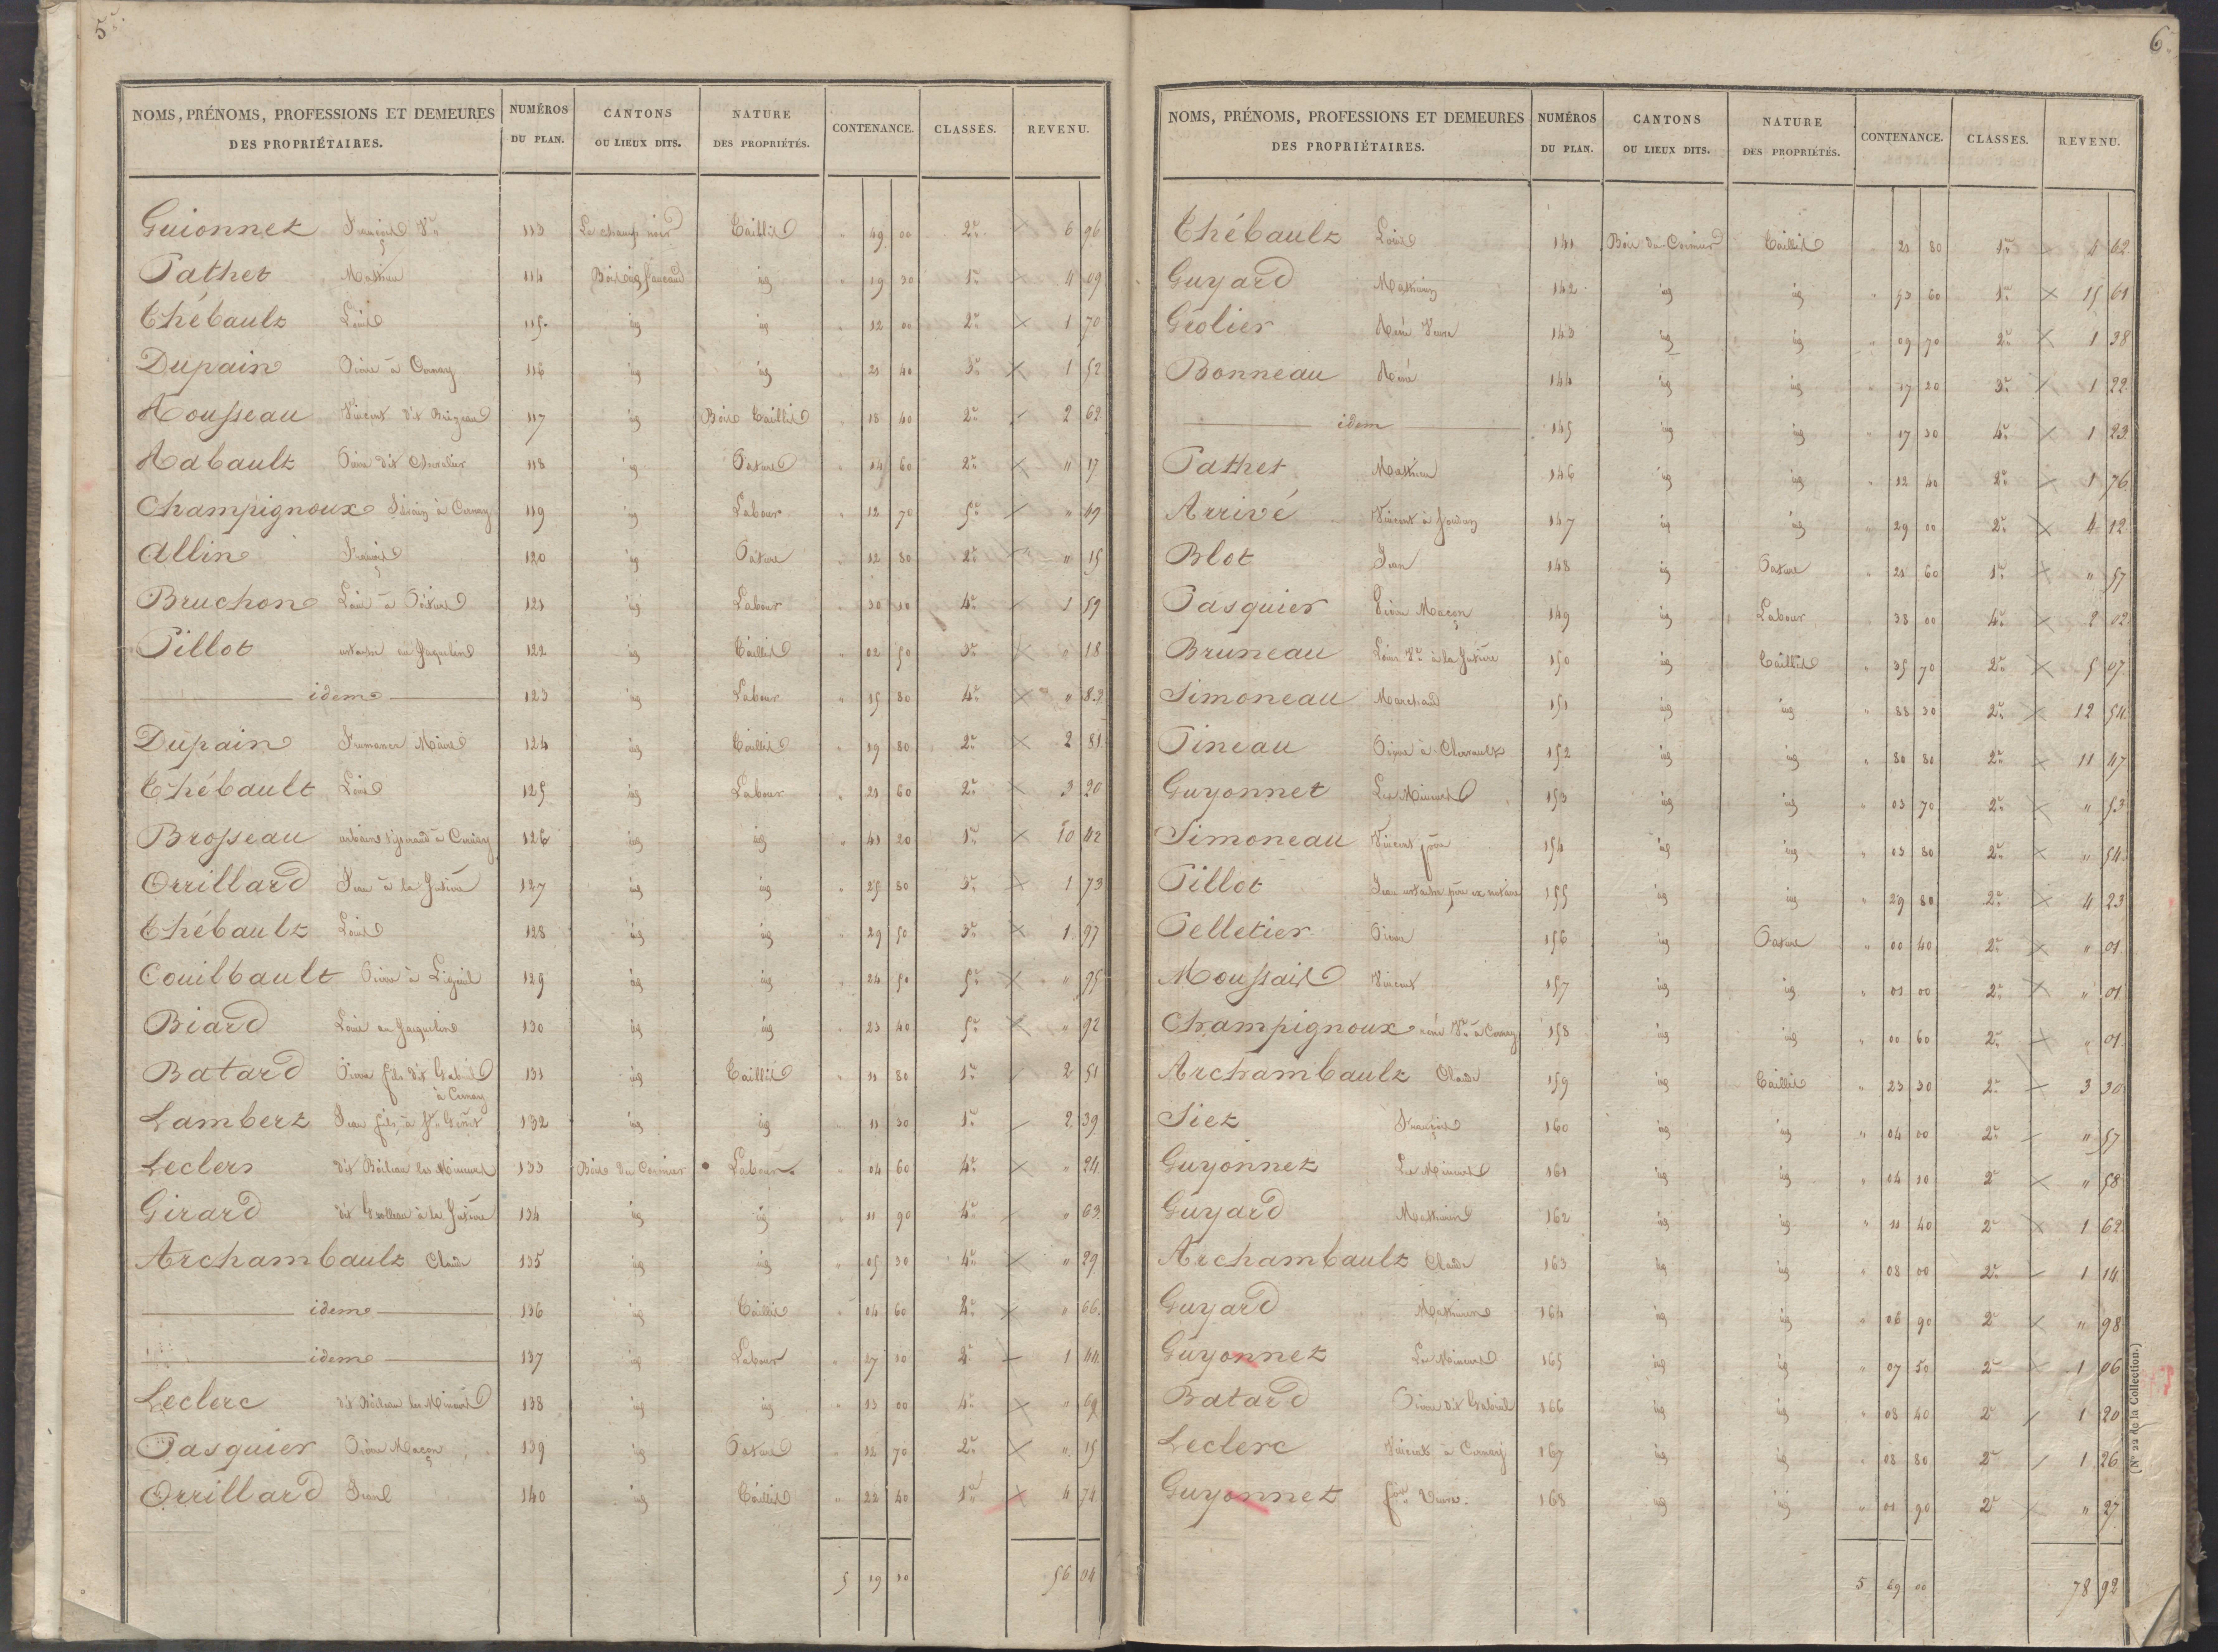 5
NOMS, PRÉNOMS, PROFESSIONS ET DEMEURES DES PROPRIÉTAIRES. NUMÉROS DU PLAN. CANTONS OU LIEUX DITS. NATURE DES PROPRIÉTÉS. CONTENANCE. CLASSES. REVENU.
Guionnet François Ve 113 Le champ noir Taillis " 49 00 2e 6 96
Pathet Mathieu 114 Bois 19 30 1e 4 09
Thébault Louis 115 id id " 12 00 2e 1 70
Dupain Pierre à Cernay 116 id id " 21 40 3e 1 52
Rousseau Vincent dit 117 id Bois Taillis " 18 40 2e 2 62
Rabault Pierre dit Chevalier 118 id Pature " 14 60 2e " 17
Champignoux à Cernay 119 id Labour " 12 70 5e " 49
Allin François 120 id Pature " 12 80 2e " 15
Bruchon Louis à 121 id Labour " 30 10 4e 1 59
Pillot eustache au Jaquelin 122 id Taillis " 02 50 3e " 18
idem 123 id Labour " 15 80 4e " 83
Dupain Maire 124 id Taillis " 19 80 2e 2 81
Thébault Louis 125 id Labour " 21 60 2e 3 20
Brosseau à Cernay 126 id id " 41 20 1e 10 42
Orrillard Jean à la 127 id id " 25 80 3e 1 73
Thébault Louis 128 id id " 29 50 3e 1 97
Couilbault Pierre à 129 id id " 24 50 5e " 95
Biard Louis au Jaquelin 130 id id " 23 40 5e " 92
Batard Pierre fils dit Gabriel à Cernay 131 id Taillis " 11 80 1e 2 51
Lambert Jean fils à St Genest 132 id id " 11 30 1e 2 39
Leclers dit Boileau les Mincurts 133 Bois du Cormier Labour " 04 60 4e " 24
Girard dit à la 134 id id " 11 90 4e " 63
Archambault Claude 135 id id " 05 30 4e " 29
idem 136 id Taillis " 04 60 2e " 66
idem 137 id Labour " 27 10 4e 1 44
Leclerc dit Boileau les 138 id id " 13 00 4e " 69
Pasquier Pierre Maçon 139 id Pature " 12 70 2e " 15
Orrillard Jean 140 id Taillis " 22 40 1e 4 74
5 19 10 56 04
6
NOMS, PRÉNOMS, PROFESSIONS ET DEMEURES DES PROPRIÉTAIRES. NUMÉROS DU PLAN. CANTONS OU LIEUX DITS. NATURE DES PROPRIÉTÉS. CONTENANCE. CLASSES. REVENU.
Thébault Louis 141 Bois du Cormier Taillis " 21 80 1e 4 62
Guyard Mathurin 142 id id " 73 60 1e 15 61
Géolier René Veuve 143 id id " 09 70 2e 1 38
Bonneau René 144 id id " 17 20 3e 1 22
idem 145 id id " 17 30 4e 1 23
Pathet Mathieu 146 id id " 12 40 2e 1 76
Arrivé Vincent à 147 id id " 29 00 2e 4 12
Blot Jean 148 id Pature " 21 60 1e " 57
Pasquier Pierre Maçon 149 id Labour 38 00 4e 2 02
Bruneau Louis Ve à la 150 id Taillis " 35 70 2e 5 07
Simoneau Marchand 151 id id " 88 30 2e 12 54
Pineau Pierre à 152 id id " 80 80 2e 11 47
Guyonnet Les Mineurs 153 id id " 03 70 2e " 53
Simoneau Vincent père 154 id id " 03 80 2e " 54
Pillot Jean eustache père ex notaire 155 id id " 29 80 2e 4 23
Pelletier Pierre 156 id Pature " 00 40 2e " 01
Moussais Vincent 157 id id " 01 00 2e " 01
Champignoux rené Ve à Cernay 158 id id " 00 60 2e " 01
Archambault Claude 159 id Taillis " 23 30 2e 3 30
Siet François 160 id id " 04 00 2e " 57
Guyonnet Les Mineurs 161 id id " 04 10 2e " 58
Guyard Mathurin 162 id id " 11 40 2e 1 62
Archambault Claude 163 id id " 08 00 2e 1 14
Guyard Mathurin 164 id id " 06 90 2e " 98
Guyonnet Les Mineurs 165 id id " 07 50 2e 1 06
Batard Pierre dit Gabriel 166 id id " 08 40 2e 1 20
Leclerc Vincent à Cernay 167 id id " 08 80 2e 1 26
Guyonnet Veuve. 168 id id " 01 90 2e " 27
5 69 00 78 92
(N° 22 de la Collection.)